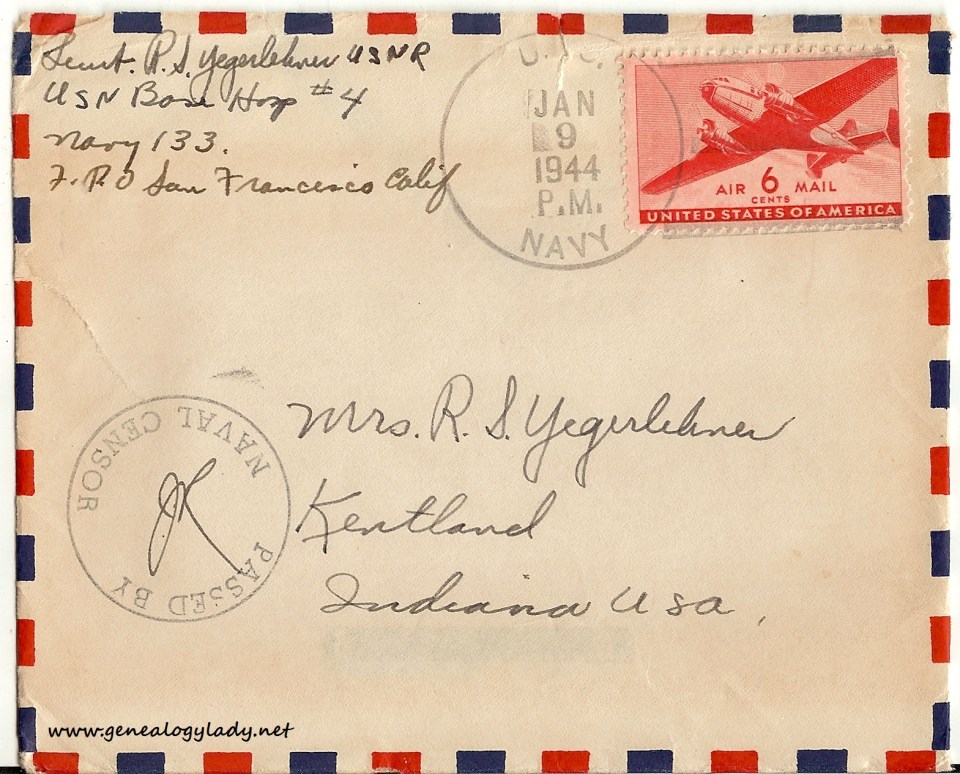 Lieut. R. S. Yegerlehner USNR
USN Base Hosp #4
Navy 133.
F. P. O San Francisco Calif
U. S.
JAN
9
1944
P.M.
NAVY
AIR 6 MAIL
CENTS
UNITED STATES OF AMERICA
Mrs. R. S. Yegerlehner
Kentland
Indiana USA,
PASSED BY
NAVAL CENSOR
JR
www.genealogylady.net